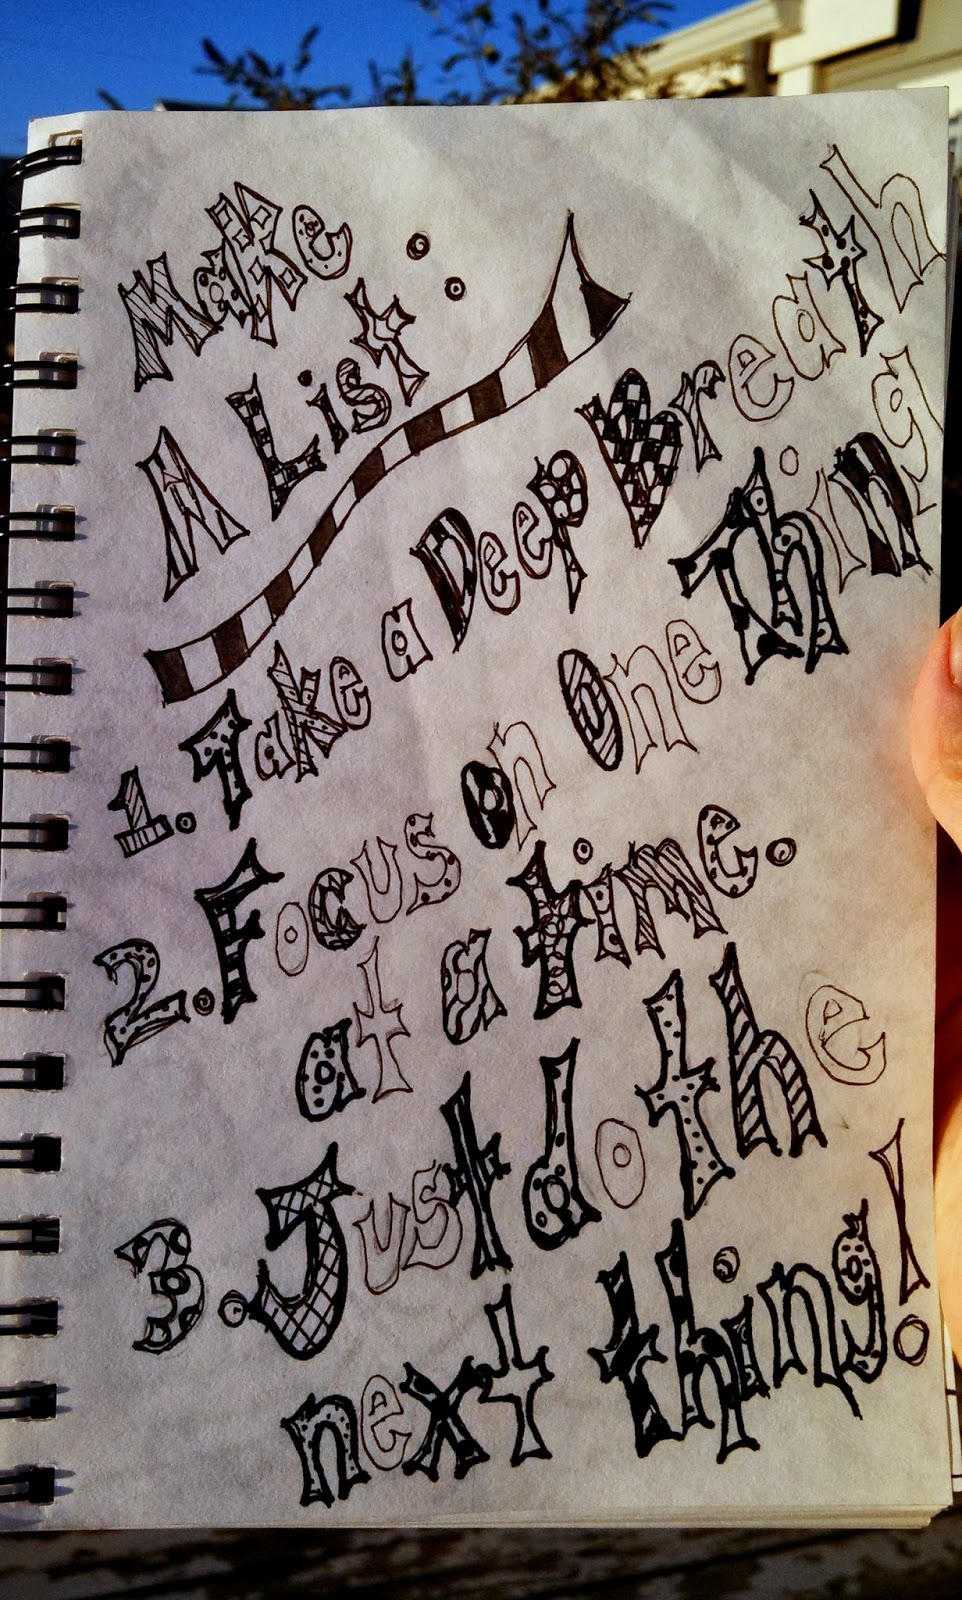 Make
A List:
1. Take a Deep Breath
2. Focus on One Thing
at a time.
3. Just do the
next thing!